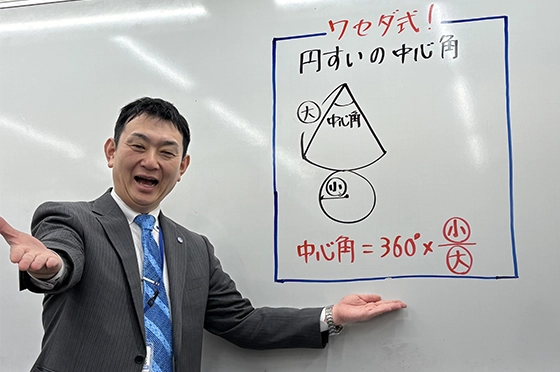 ワセダ式!
円すいの中心角
大
中心角
小
中心角=360°×小/大